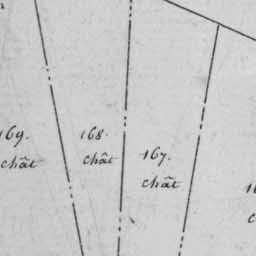 169.
chât
168.
chât
167.
chât